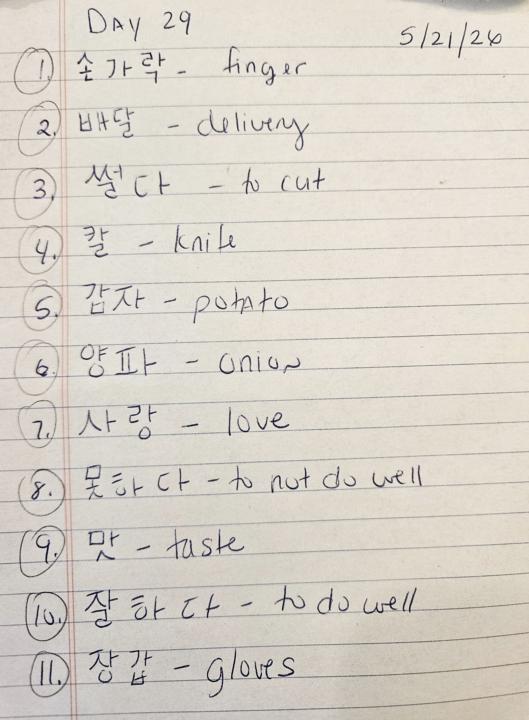 DAY 29
5/21/26
1. 손가락 - finger
2. 배달 - delivery
3. 썰다 - to cut
4. 칼 - knife
5. 감자 - potato
6. 양파 - onion
7. 사랑 - love
8. 못하다 - to not do well
9. 맛 - taste
10. 잘하다 - to do well
11. 장갑 - gloves